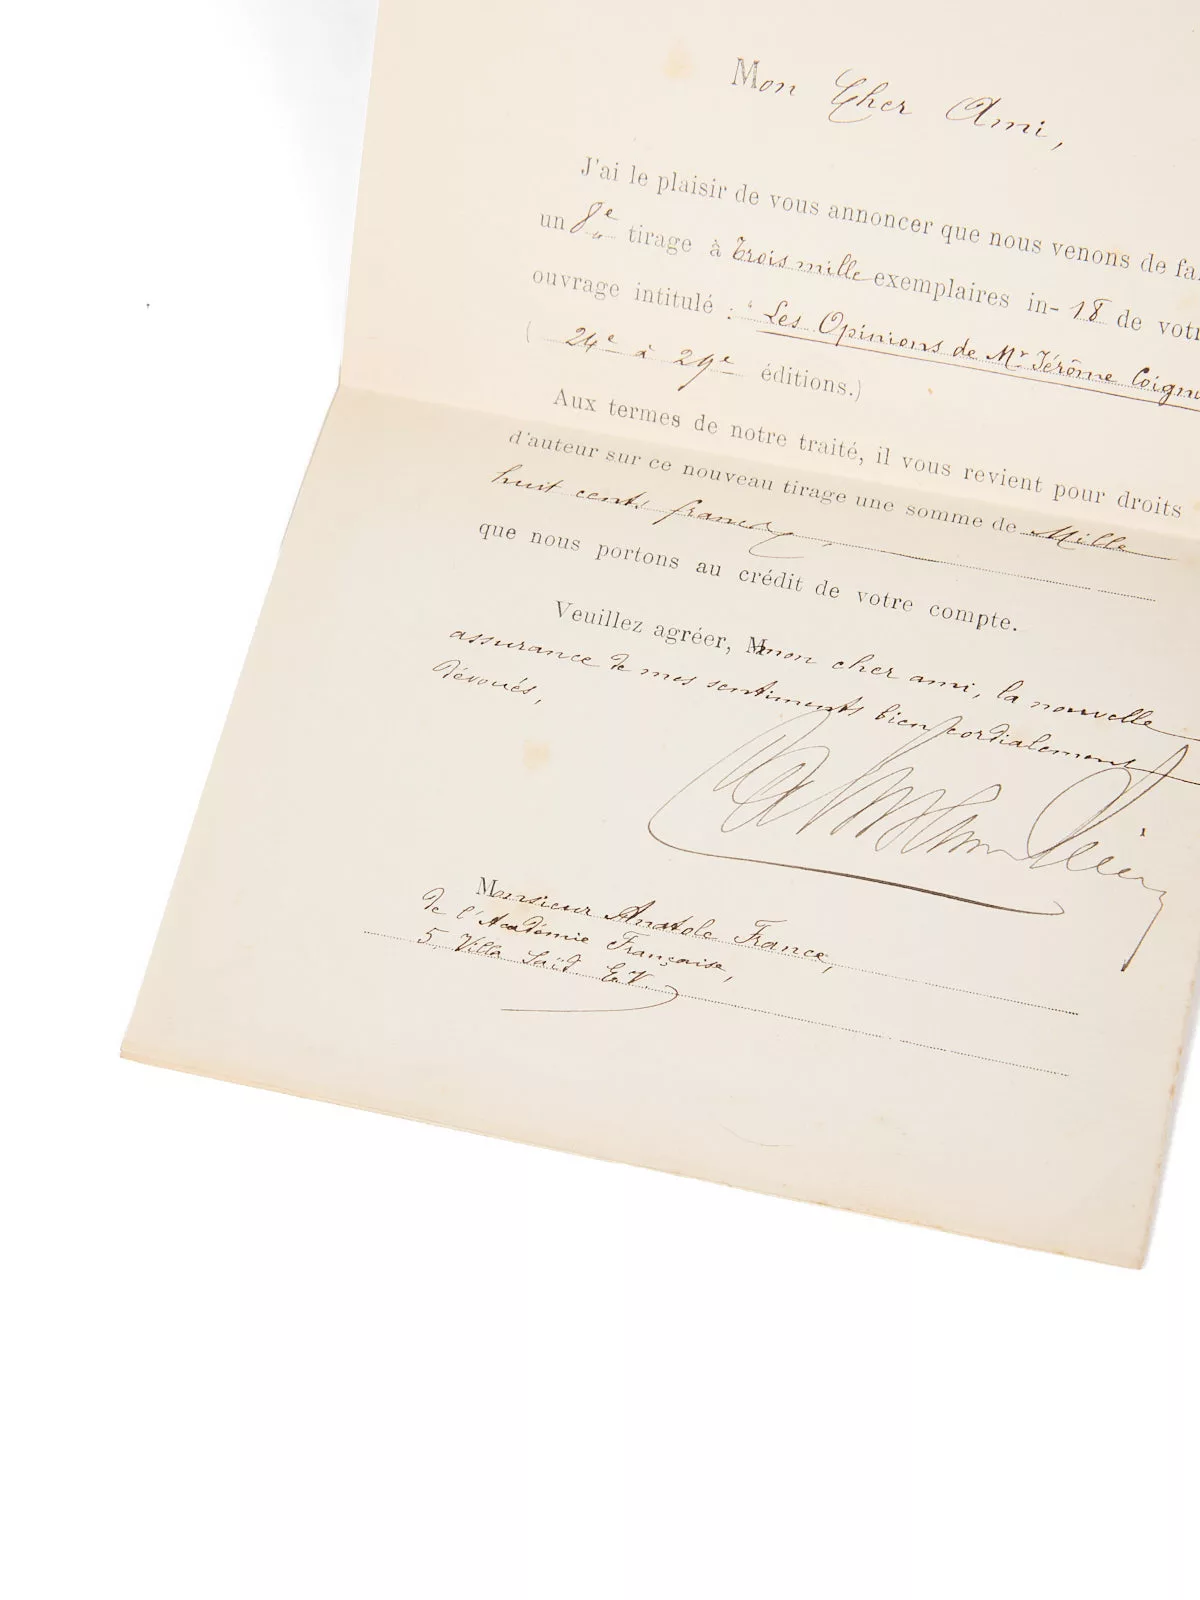 Mon Cher Ami,
J'ai le plaisir de vous annoncer que nous venons de fai
un 8e tirage à Trois mille exemplaires in-18 de votr
ouvrage intitulé : "Les Opinions de Mr Jérôme Coign
( 24e à 29e éditions.)
Aux termes de notre traité, il vous revient pour droits
d'auteur sur ce nouveau tirage une somme de Mille
huit cents francs
que nous portons au crédit de votre compte.
Veuillez agréer, mon cher ami, la nouvelle
assurance de mes sentiments bien cordialement
dévoués,
Monsieur Anatole France,
de l'Académie Française,
5. Villa Saïd. E.V.